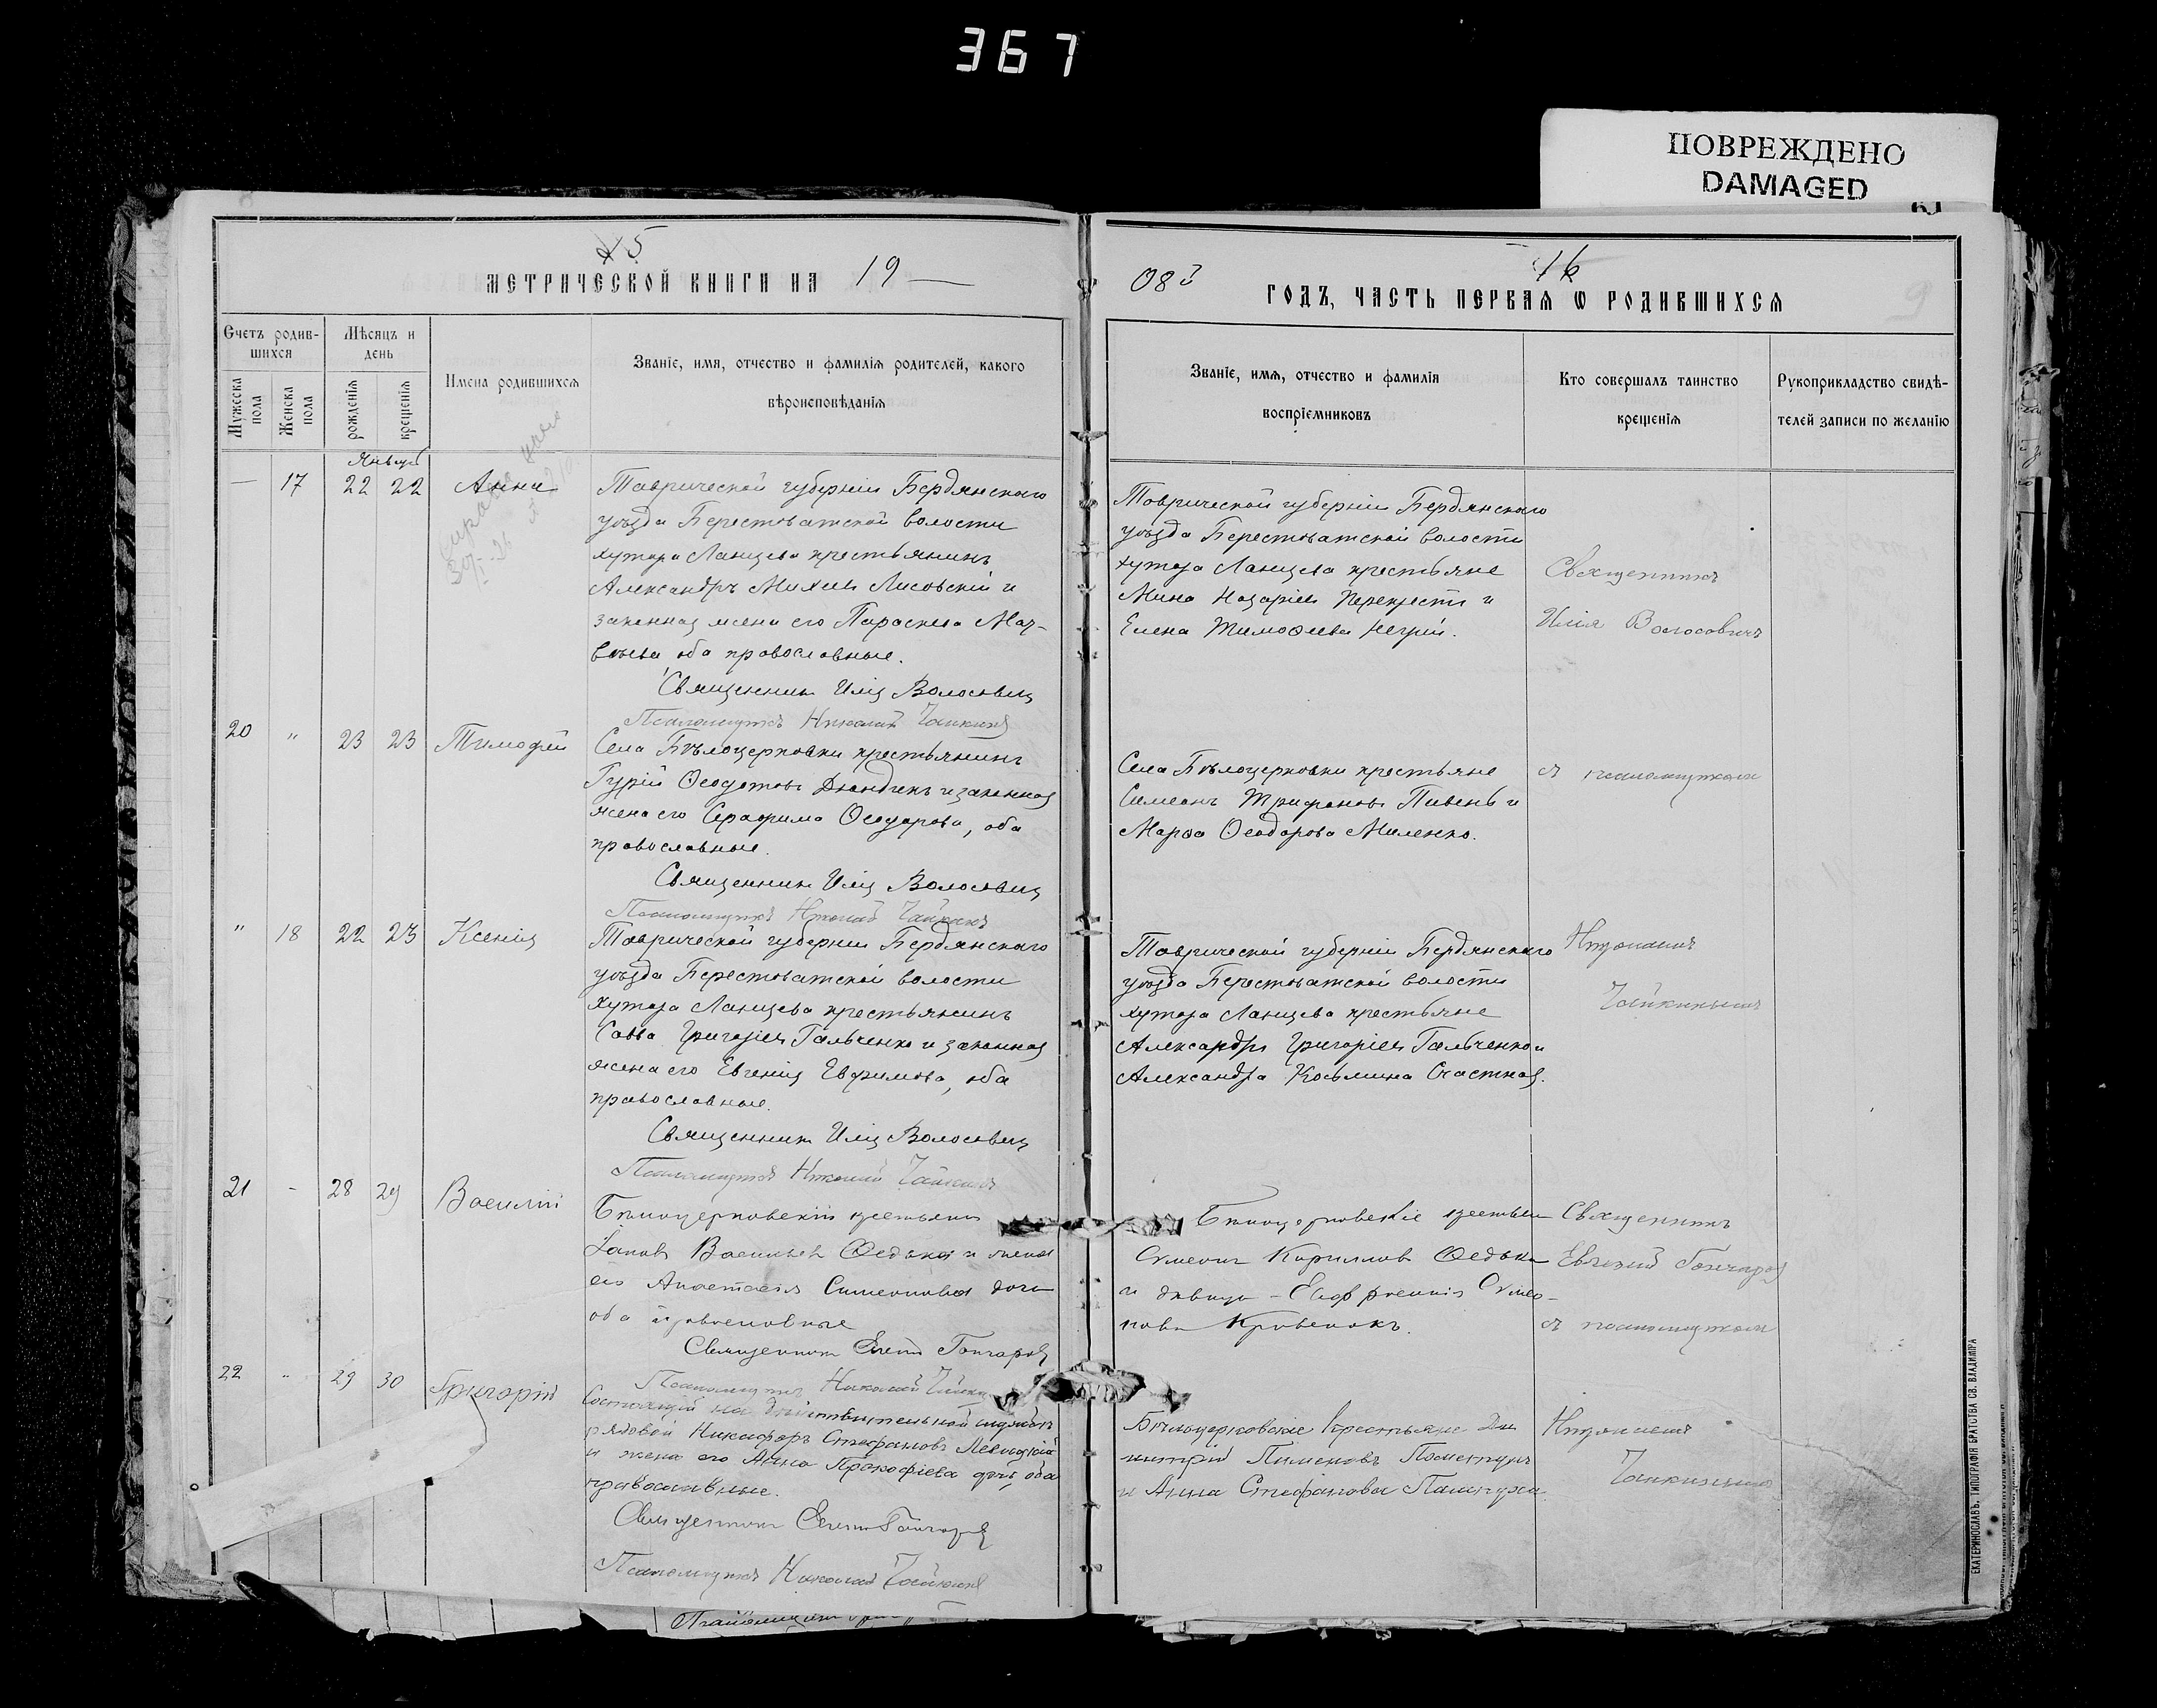 367
ПОВРЕЖДЕНО
DAMAGED
15
МЕТРИЧЕСКОЙ КНИГИ НА 19
Счетъ родив-
шихся
Мѣсяцъ и
день
Имена родившихся
Званіе, имя, отчество и фамилія родителей, какого
вѣроисповѣданія
Мужеска
пола
Женска
пола
рожденія
крещенія
Январь
— 17 22 22 Анна
Таврической губерніи Бердянскаго
уѣзда Берестоватской волости
хутора Ланцева крестьянинъ
Александръ Лисовскій и
законная жена его Параскева Мат-
вѣева оба православные.
Священникъ Илія Волосовичъ
Псаломщикъ Николай Чайкинъ
20 " 23 23 Тимофей
Села Бѣлоцерковки крестьянинъ
Гурій Ѳеодотовъ и законная
жена его Серафима Ѳеодорова, оба
православные.
Священникъ Илія Волосовичъ
Псаломщикъ Николай Чайкинъ
" 18 22 23 Ксенія
Таврической губерніи Бердянскаго
уѣзда Берестоватской волости
хутора Ланцева крестьянинъ
Савва Григоріевъ Гальченко и законная
жена его Евгенія Евфимова, оба
православные.
Священникъ Илія Волосовичъ
Псаломщикъ Николай Чайкинъ
21 - 28 29 Василій
Бѣлоцерковскій крестьянинъ
Іаковъ Васильевъ Ѳедька и жена
его Анастасія Симеонова дочь
оба православные
Священникъ Гончаровъ
Псаломщикъ Николай
22 " 29 30 Григорій
Состоящій на дѣйствительной службѣ
рядовой Никифоръ Стефановъ Левицкій
и жена его Анна Прокофіева дочь, оба
православные.
Священникъ Гончаровъ
Псаломщикъ Николай Чайкинъ
16
08й ГОДЪ, ЧАСТЬ ПЕРВАЯ Ѡ РОДИВШИХСЯ
Званіе, имя, отчество и фамилія
воспріемниковъ
Кто совершалъ таинство
крещенія
Рукоприкладство свидѣ-
телей записи по желанію
Таврической губерніи Бердянскаго
уѣзда Берестоватской волости
хутора Ланцева крестьяне
Мина Назаріевъ Перекрестъ и
Елена Тимоѳеева Негрій.
Священникъ
Илія Волосовичъ
Села Бѣлоцерковки крестьяне
Симеонъ Трифоновъ Пивень и
Марѳа Ѳеодорова Миленко.
съ псаломщикомъ
Таврической губерніи Бердянскаго
уѣзда Берестоватской волости
хутора Ланцева крестьяне
Александръ Григоріевъ Гальченко и
Александра Косьмина Счастная.
Николаемъ
Чайкинымъ
Бѣлоцерковскіе крестьяне
Симеонъ Кирилловъ Ѳедька
и дѣвица - Евфросинія Симео-
нова Кривенокъ.
Священникъ
Евгеній Гончаровъ
съ псаломщикомъ
Бѣлоцерковскіе крестьяне Ди
митрій Пименовъ
и Анна Стефанова
Николаемъ
Чайкинымъ
ЕКАТЕРИНОСЛАВЪ, ТИПОГРАФІЯ БРАТСТВА СВ. ВЛАДИМІРА